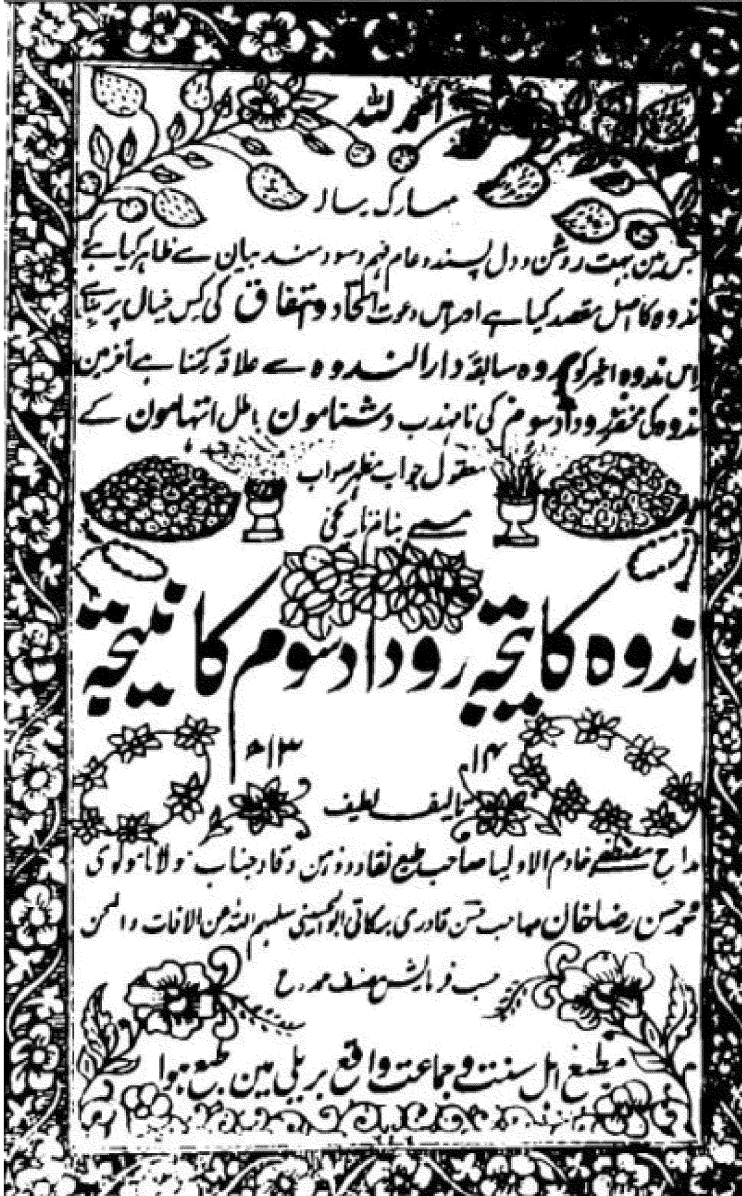 الحمد للہ
مبارک رسالہ
جس مین بہت روشن و دل پسند و عام فہم و سود مند بیان سے ظاہر کیا ہے کہ
ندوہ کا اصل مقصد کیا ہے اور اس دعوت اتحاد و اتفاق کی کس خیال پر بنا ہے
اس ندوہ اخیر کو گروہ سابقہ دار الندوہ سے علاقہ کتنا ہے آخر مین
ندوہ کی روداد سوم کی نا مہذب دشنامون باطل اتہامون کے
معقول جواب مظہر صواب
مسمے بنام تاریخی
ندوہ کا تیجہ روداد سوم کا نتیجہ
۱۳۱۴ھ
تالیف لطیف
مداح مصطفے خادم الاولیا صاحب طبع نقاد و ذہن وقاد جناب مولانا مولوی
محمد حسن رضا خان صاحب حسن قادری برکاتی ابو الحسینی سلمہم اللہ عن الافات والمحن
حسب فرمایش مصنف ممدوح
مطبع اہل سنت و جماعت واقع بریلی مین طبع ہوا